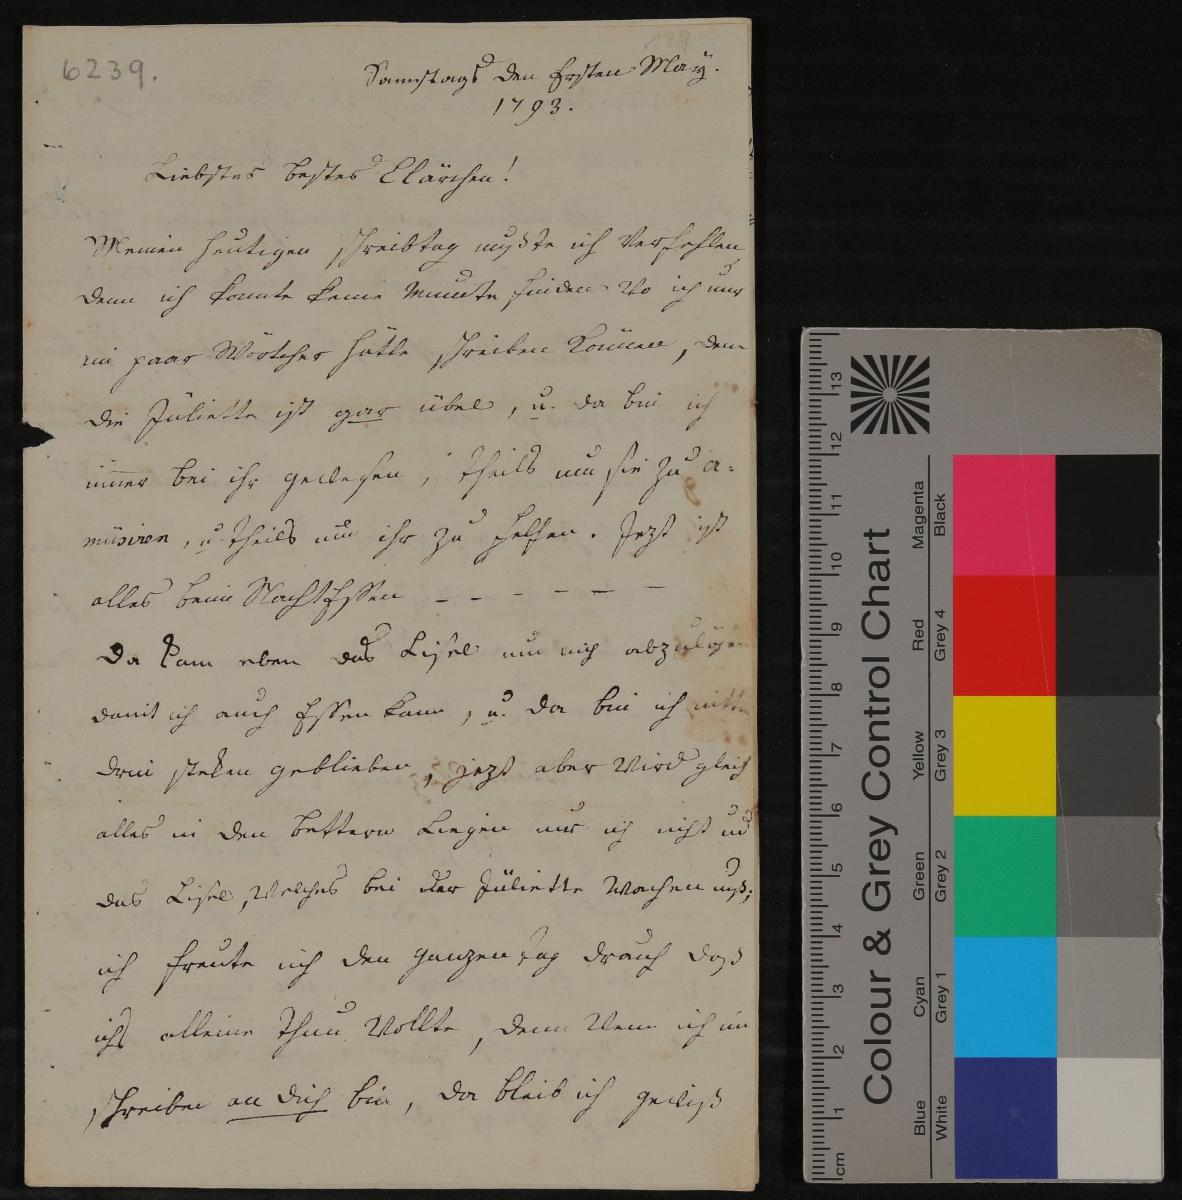 6239.
Samstags den Ersten May.
1793.
Liebstes bestes Clärchen!
Meinen heutigen schreibtag mußte ich Verfehlen
denn ich konnte keine Minute finden Wo ich nur
ein paar Wörtcher hätte schreiben können, denn
die Jüliette ist gar übel, u. da bin ich
immer bei ihr gewesen, theils um sie zu a-
müsiren, u. theils um ihr zu helfen. Jezt ist
alles beim NachtEssen – – – – – –
Da kam eben das Lisel um mich abzulösen
damit ich auch Essen kann, u. da bin ich mitten
drin steken geblieben, jezt aber Wird gleich
alles in den bettern Liegen nur ich nicht und
das Lisel, Welches bei der Jüliette Wachen muß;
ich freute mich den ganzen tag drauf daß
ichs alleine thun Wollte, denn Wenn ich im
schreiben an dich bin, da bleib ich gewiß
cm 1 2 3 4 5 6 7 8 9 10 11 12 13
Colour & Grey Control Chart
Blue Cyan Green Yellow Red Magenta
White Grey 1 Grey 2 Grey 3 Grey 4 Black